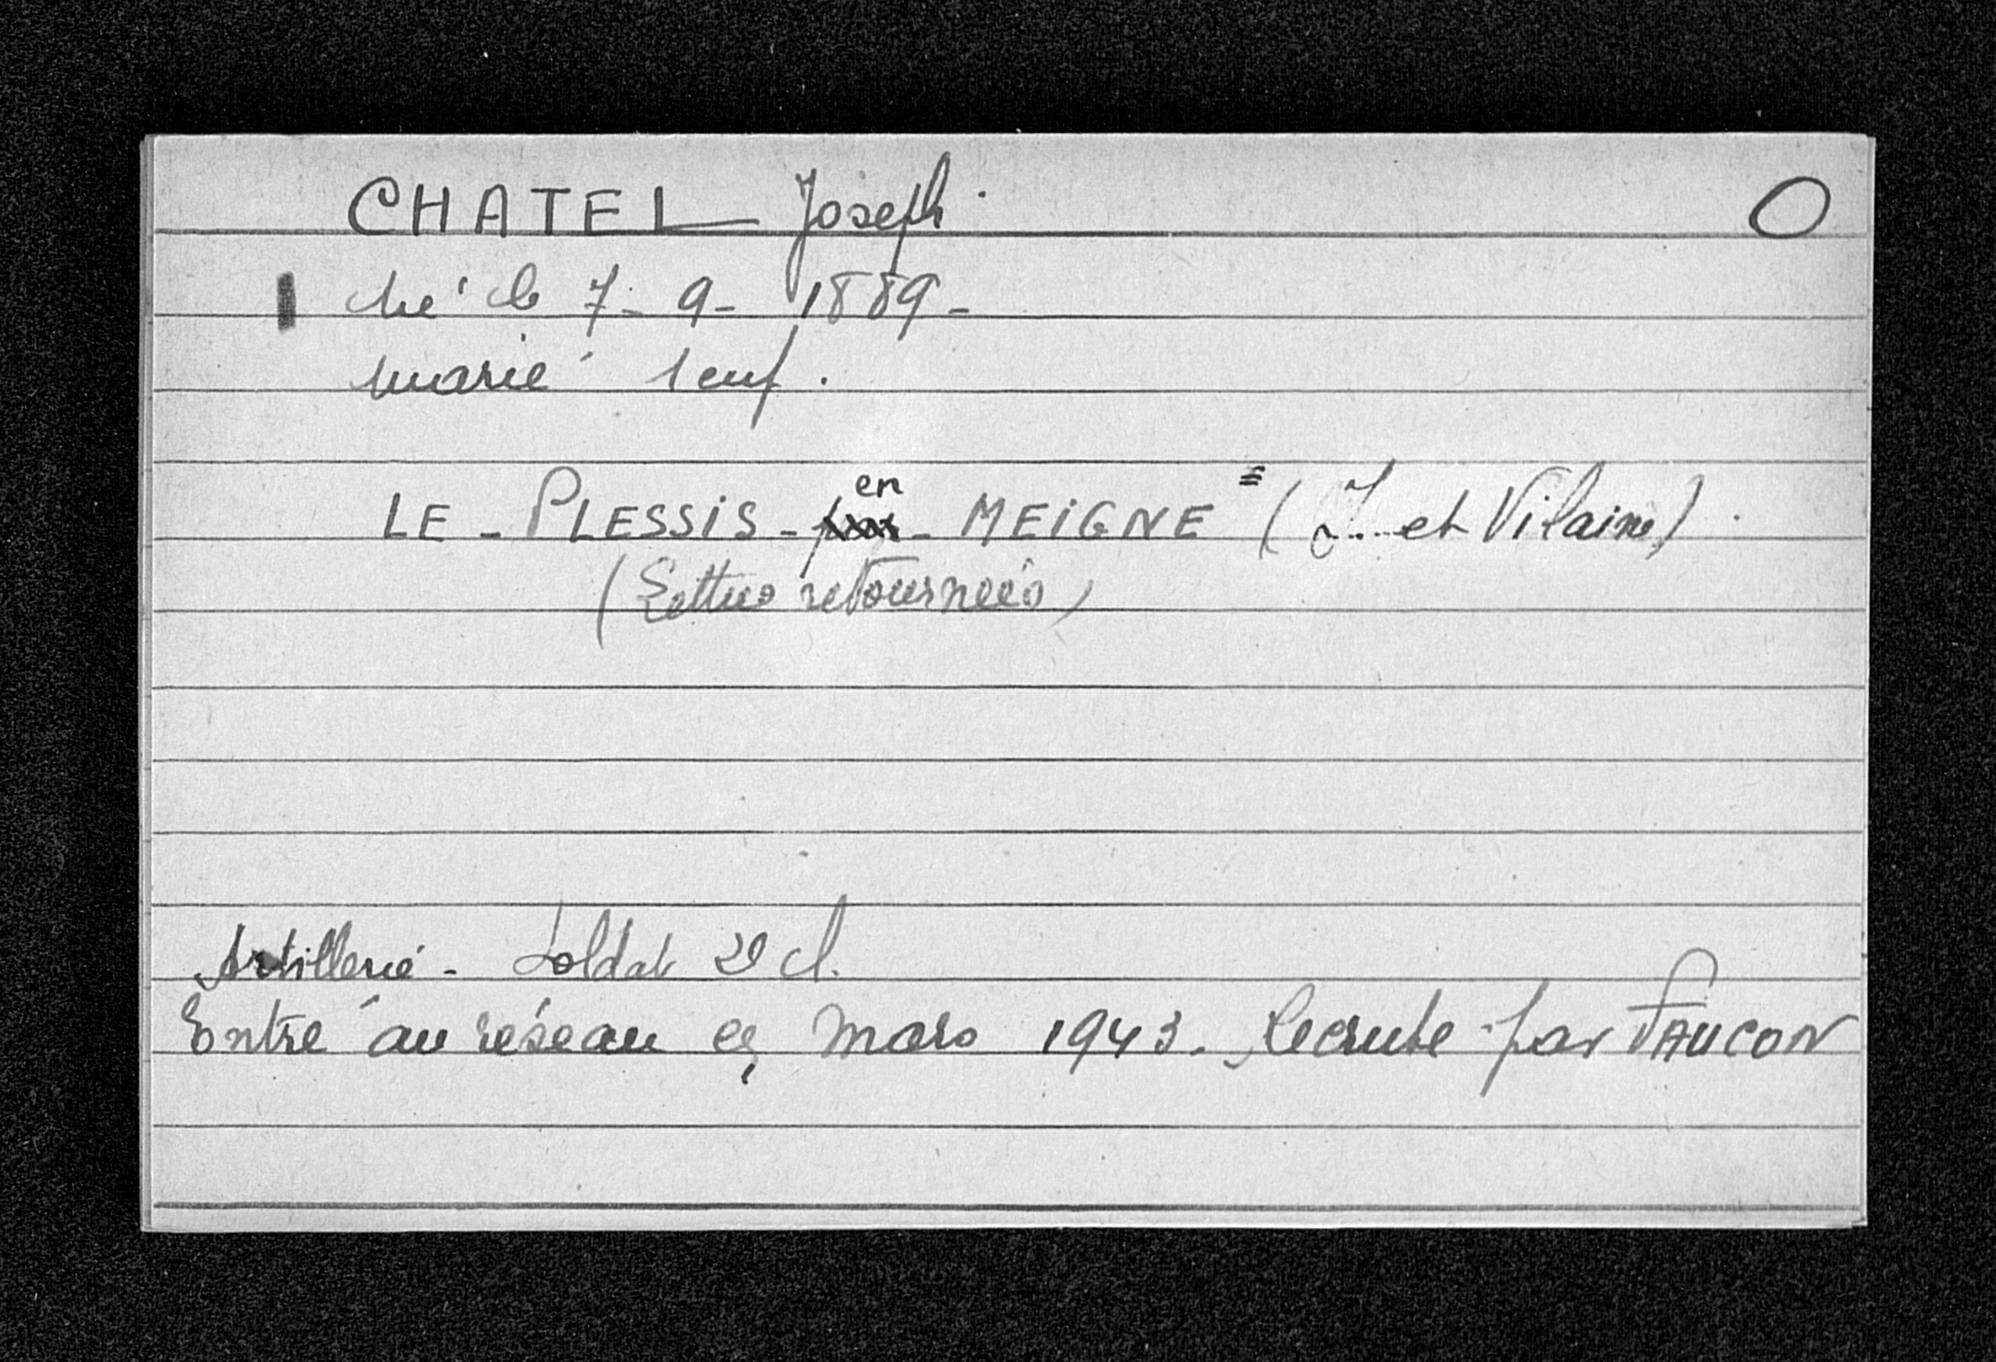 CHATEL Joseph. O
né le 7-9-1889-
marié 1 enf.
LE-PLESSIS- en -MEIGNE (I.... et Vilaine).
(Lettres retournées)
Artillerie - Soldat 2e cl.
Entré au réseau en mars 1943. Recruté par FAUCON